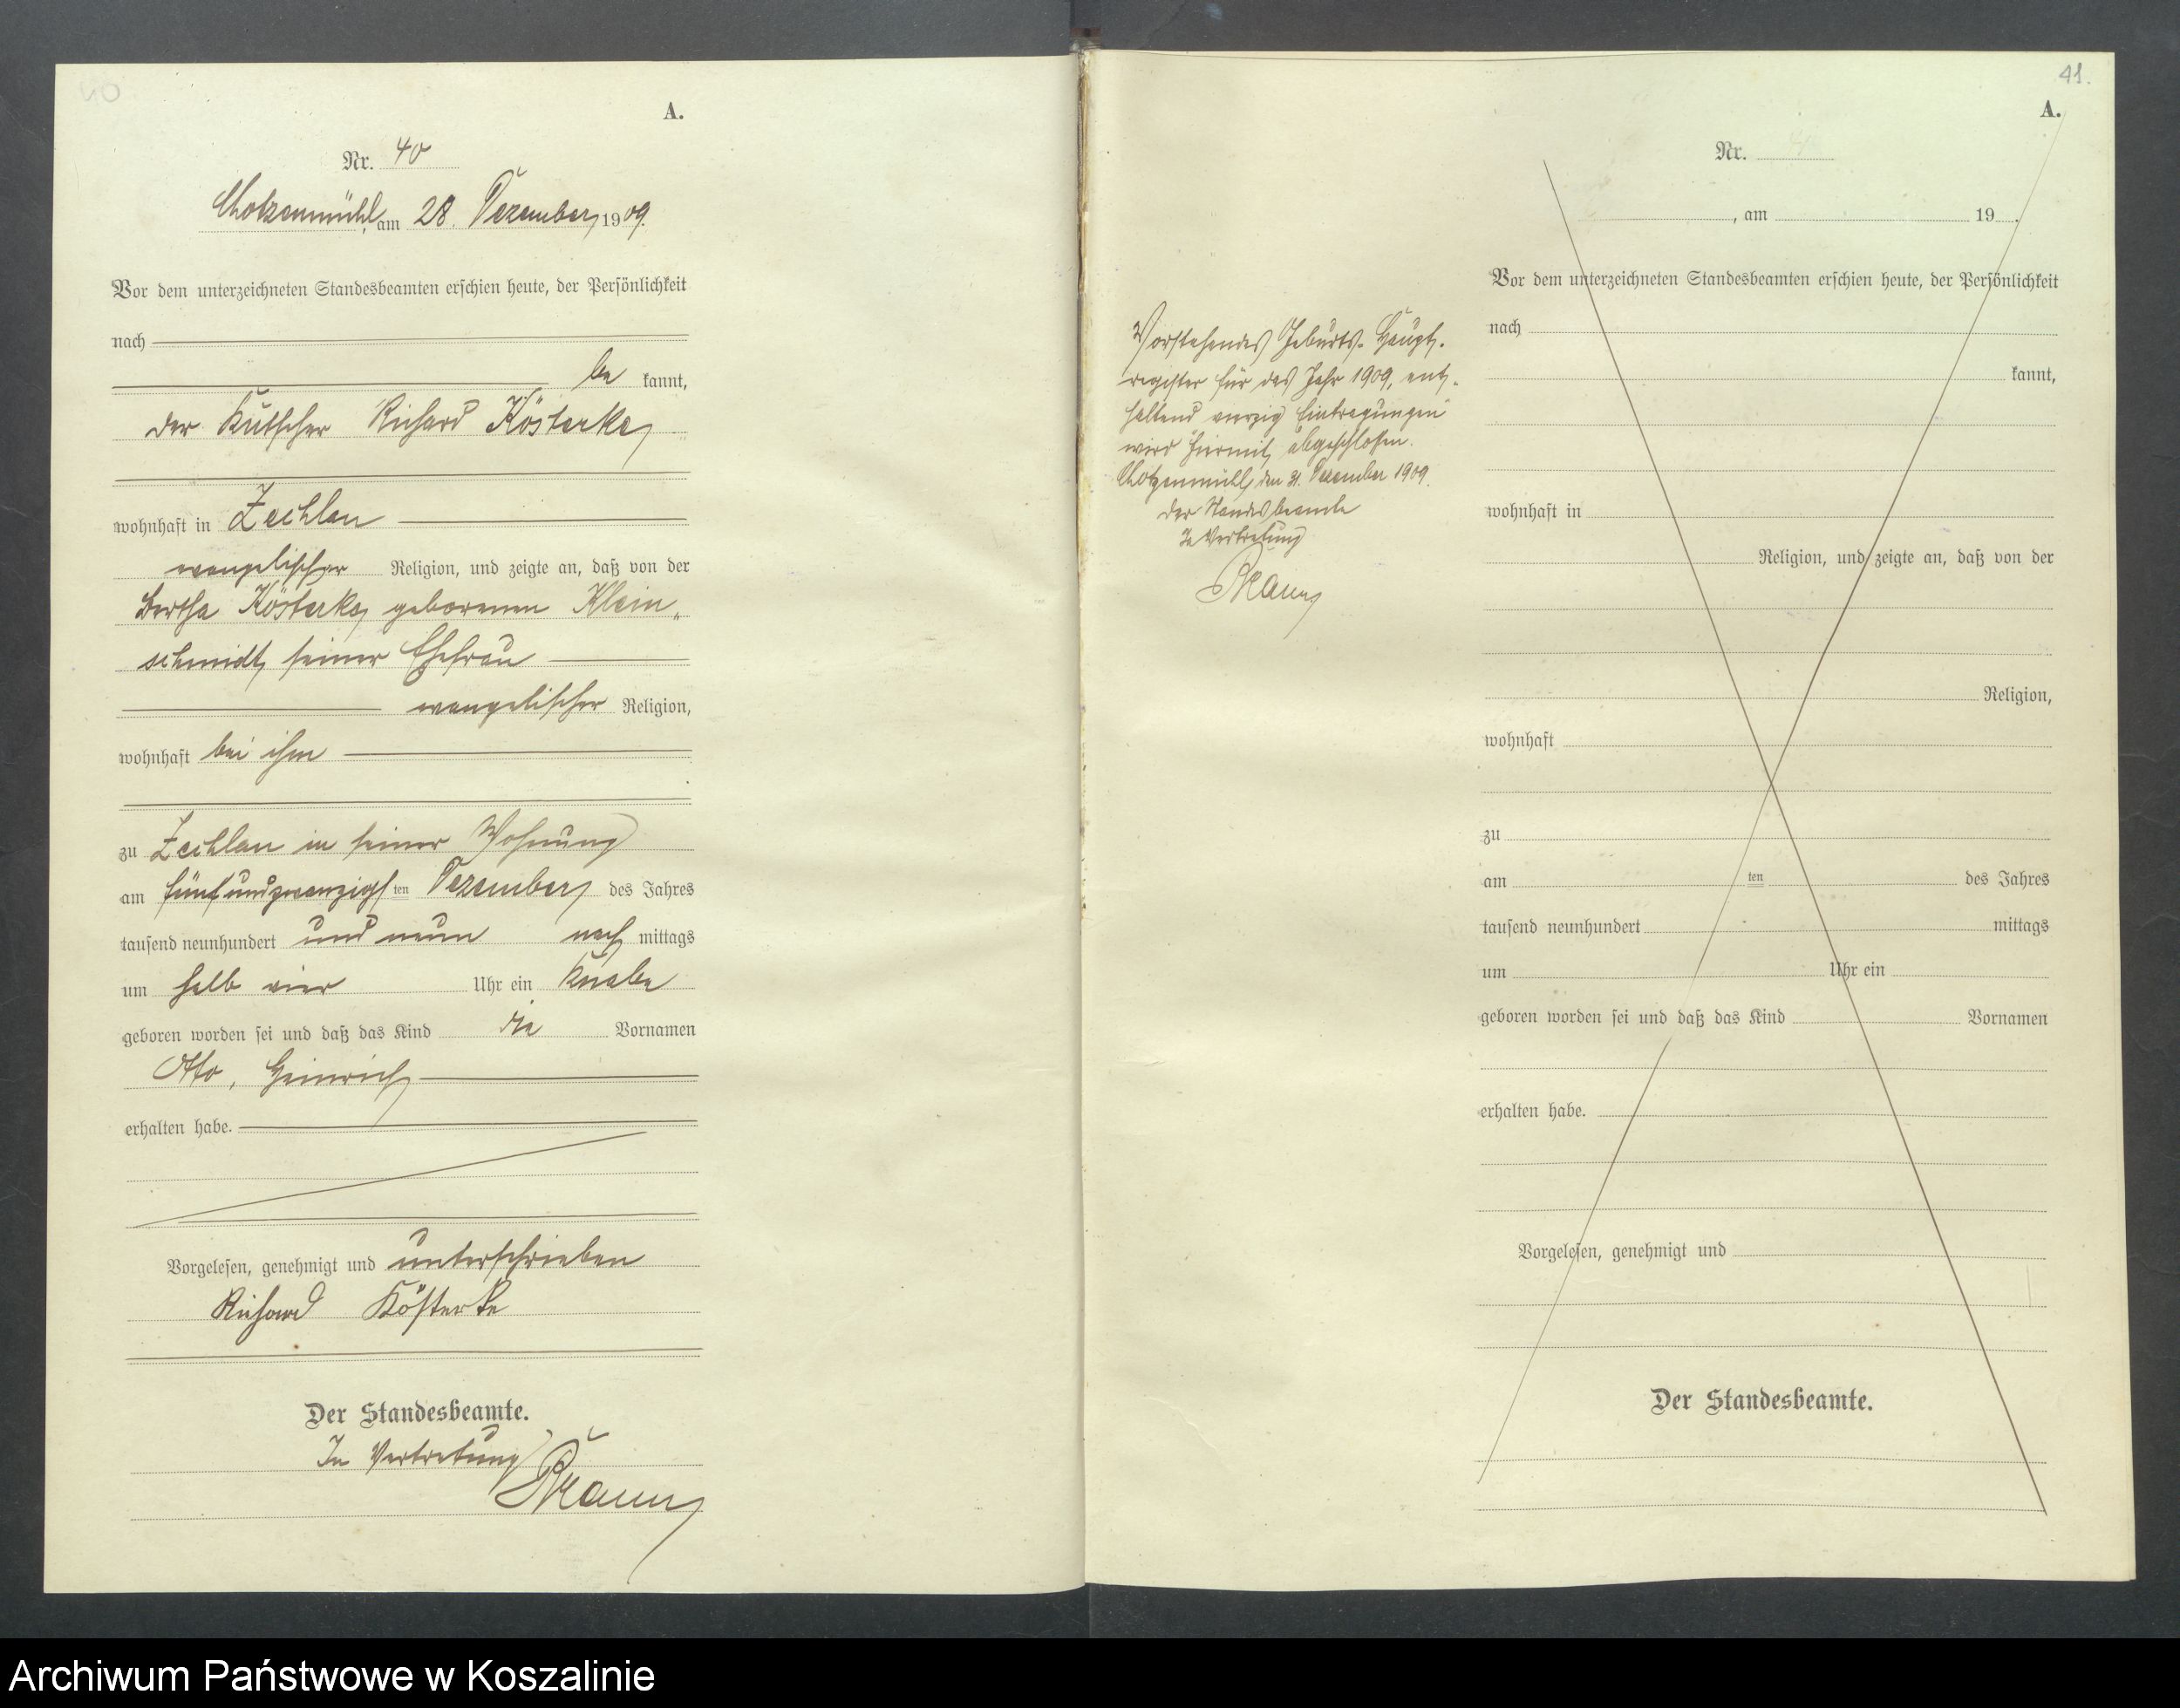 40
A.
Nr. 40
Chotzenmühl, am 28. Dezember 1909.
Vor dem unterzeichneten Standesbeamten erschien heute, der Persönlichkeit
nach
be kannt,
der Kutscher Richard Kösterke,
wohnhaft in Zechlau
evangelischer Religion, und zeigte an, daß von der
Bertha Kösterke, geborenen Klein„
schmidt, seiner Ehefrau
evangelischer Religion,
wohnhaft bei ihm
zu Zechlau in seiner Wohnung
am fünfundzwanzigsten Dezember des Jahres
tausend neunhundert und neun nach mittags
um halb vier Uhr ein Knabe
geboren worden sei und daß das Kind die Vornamen
Otto, Heinrich
erhalten habe.
Vorgelesen, genehmigt und unterschrieben
Richard Kösterke
Der Standesbeamte.
In Vertretung
41.
A.
Vorstehendes Geburts-Haupt-
register für das Jahr 1909, ent-
haltend vierzig Eintragungen
wird hiermit abgeschlossen.
Chotzenmühl, den 31. Dezember 1909.
Der Standesbeamte
In Vertretung
Nr.
, am 19 .
Vor dem unterzeichneten Standesbeamten erschien heute, der Persönlichkeit
nach
kannt,
wohnhaft in
Religion, und zeigte an, daß von der
Religion,
wohnhaft
zu
am ten des Jahres
tausend neunhundert mittags
um Uhr ein
geboren worden sei und daß das Kind Vornamen
erhalten habe.
Vorgelesen, genehmigt und
Der Standesbeamte.
Archiwum Państwowe w Koszalinie